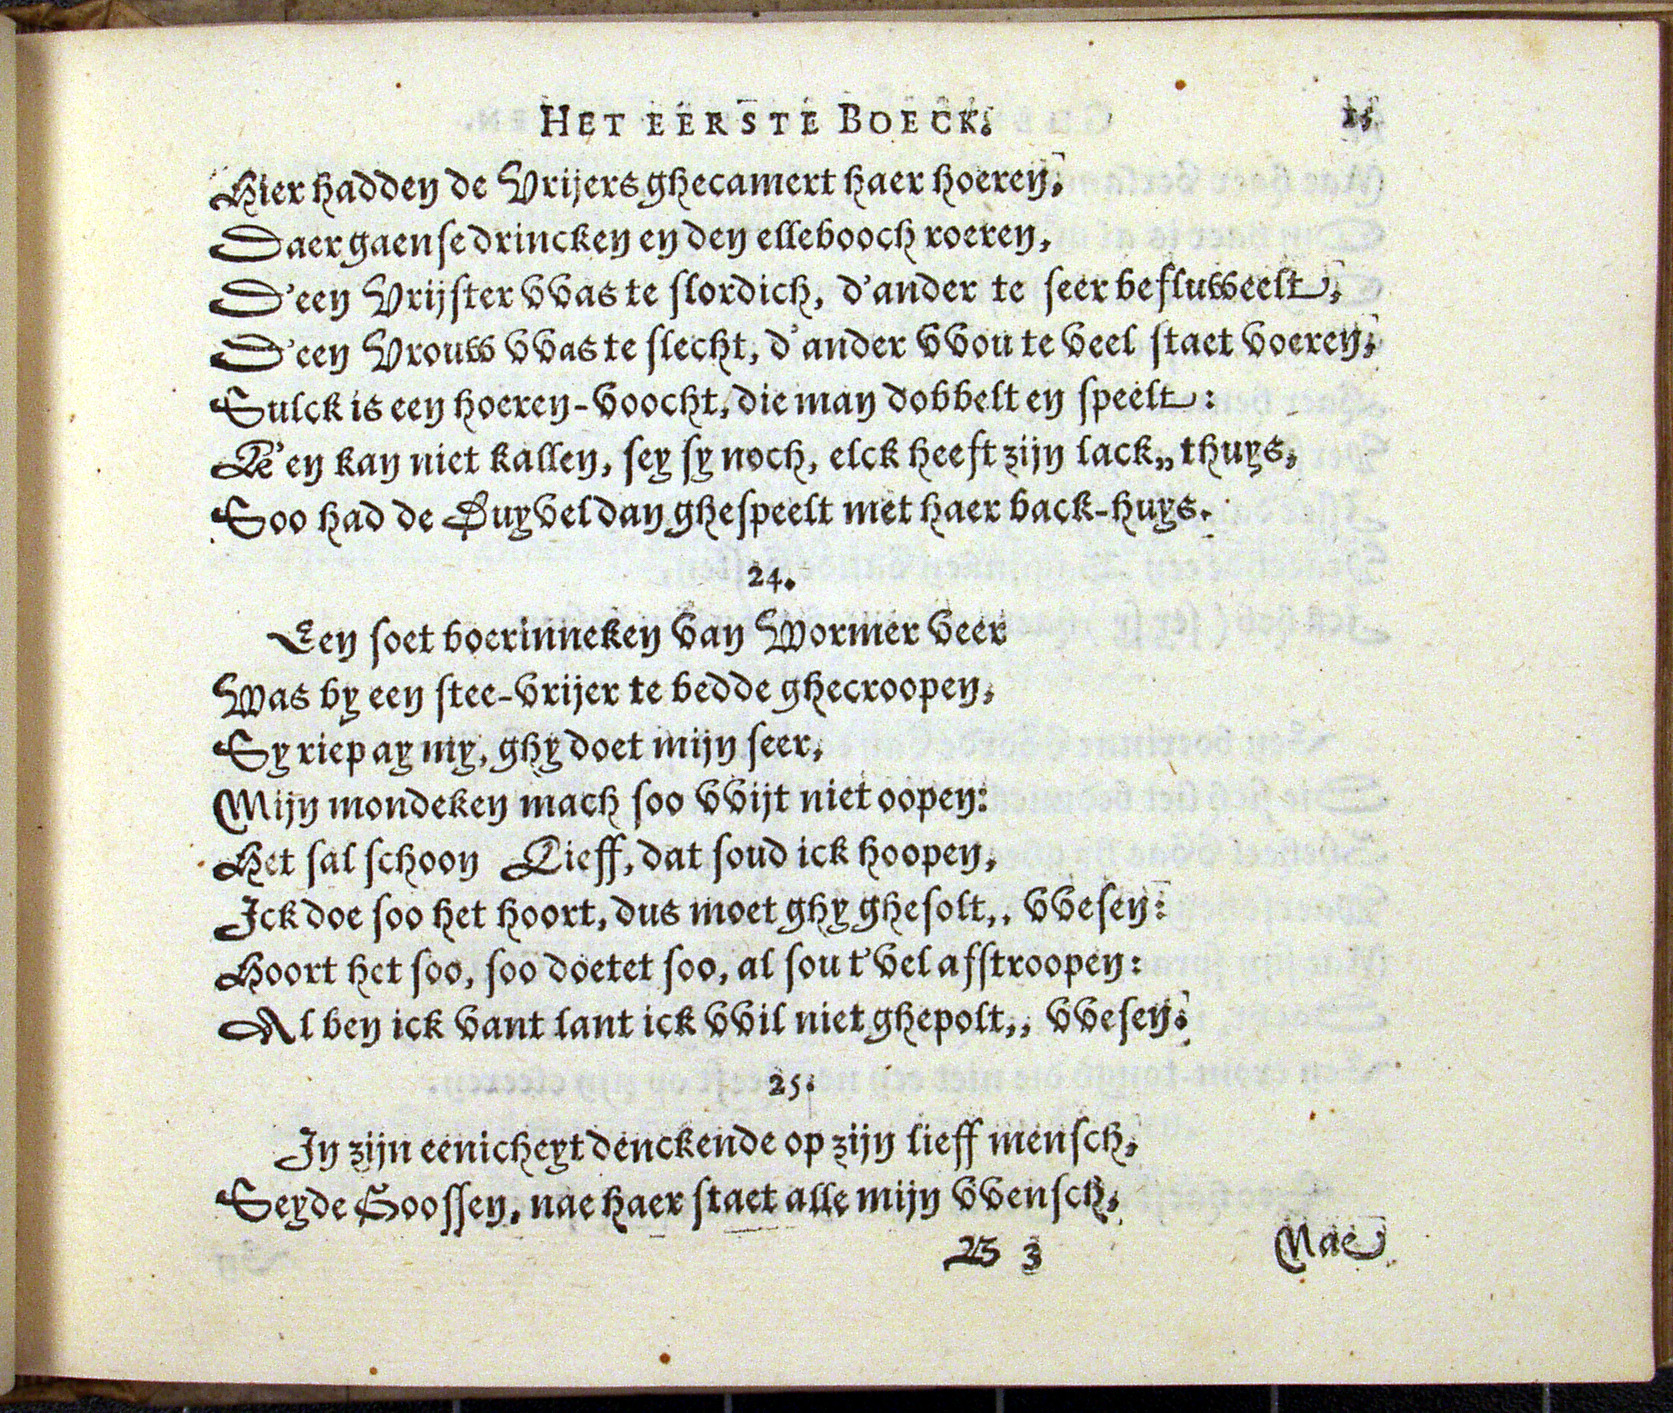 HET EERSTE BOECK. 15
Hier hadden de Vrijers ghecamert haer hoeren,
Daer gaense drincken en den ellebooch roeren,
D'een Vrijster vvas te slordich, d'ander te seer befluweelt,
D'een Vrouw vvas te slecht, d'ander vvou te veel staet voeren,
Sulck is een hoeren-voocht, die man dobbelt en speelt:
Ké en kan niet kallen, sey sy noch, elck heeft zijn lack,, thuys,
Soo had de Duyvel dan ghespeelt met haer back-huys.
24.
Een soet boerinneken van Wormer veer
Was by een stee-vrijer te bedde ghecroopen,
Sy riep ay my, ghy doet mijn seer,
Mijn mondeken mach soo vvijt niet oopen:
Het sal schoon Lieff, dat soud ick hoopen,
Ick doe soo het hoort, dus moet ghy ghesolt,, vvesen:
Hoort het soo, soo doetet soo, al sou t'vel afstroopen:
Al ben ick vant lant ick vvil niet ghepolt,, vvesen.
25.
In zijn eenicheyt denckende op zijn lieff mensch,
Seyde Goossen, nae haer staet alle mijn vvensch,
B 3 Nae